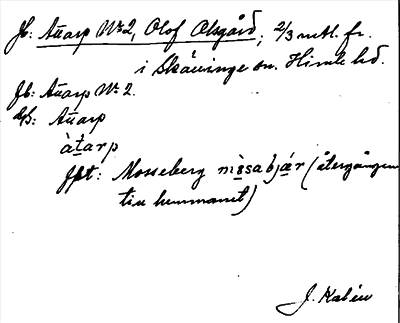 Jb: Attarp Nr 2, Olof Olsgård; 2/3 mtl. fr.
i Skällinge sn. Himle hd.
Jb: Attarp Nr 2.
Ub: Attarp
àtarp
Jfr: Mosseberg mòsabjǽr (återgången
till hemmanet)
J. Kalén